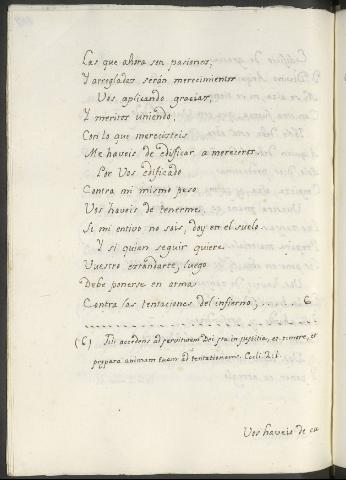 Las que ahora son pasiones,
Y arregladas serán merecimientos
Vos aplicando gracias,
Y meritos uniendo,
Con lo que merecisteis
Me haveis de edificar a mereceros.
Por Vos edificado
Contra mi mismo peso
Vos haveis de tenerme.
Si mi entivo no sois, doy en el suelo.
Y si quien seguir quiere
Vuestro estandarte, luego
Debe ponerse en arma
Contra las tentaciones del infierno; 6
(6) Fili accedens ad servitutem Dei sta in justitia, et timore, et
prepara animam tuam ad tentationem. Ecli. 2.1.
Vos haveis de ca